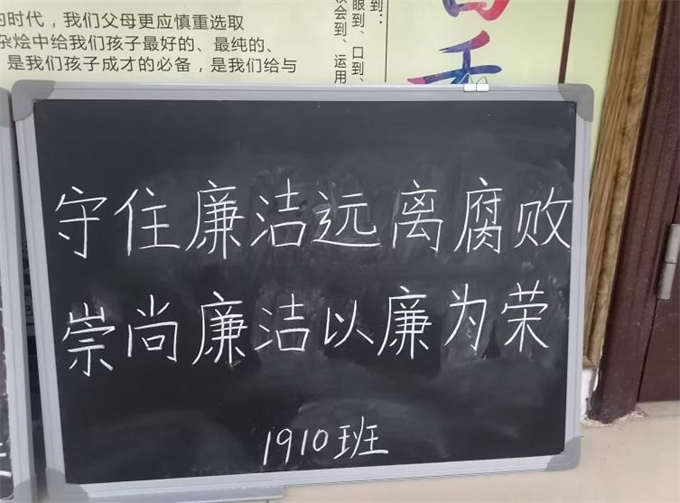 的时代，我们父母更应慎重选取
杂烩中给我们孩子最好的、最纯的、
是我们孩子成才的必备，是我们给与
到：
眼到、口到、
会到、运用
守住廉洁远离腐败
崇尚廉洁以廉为荣
1910班